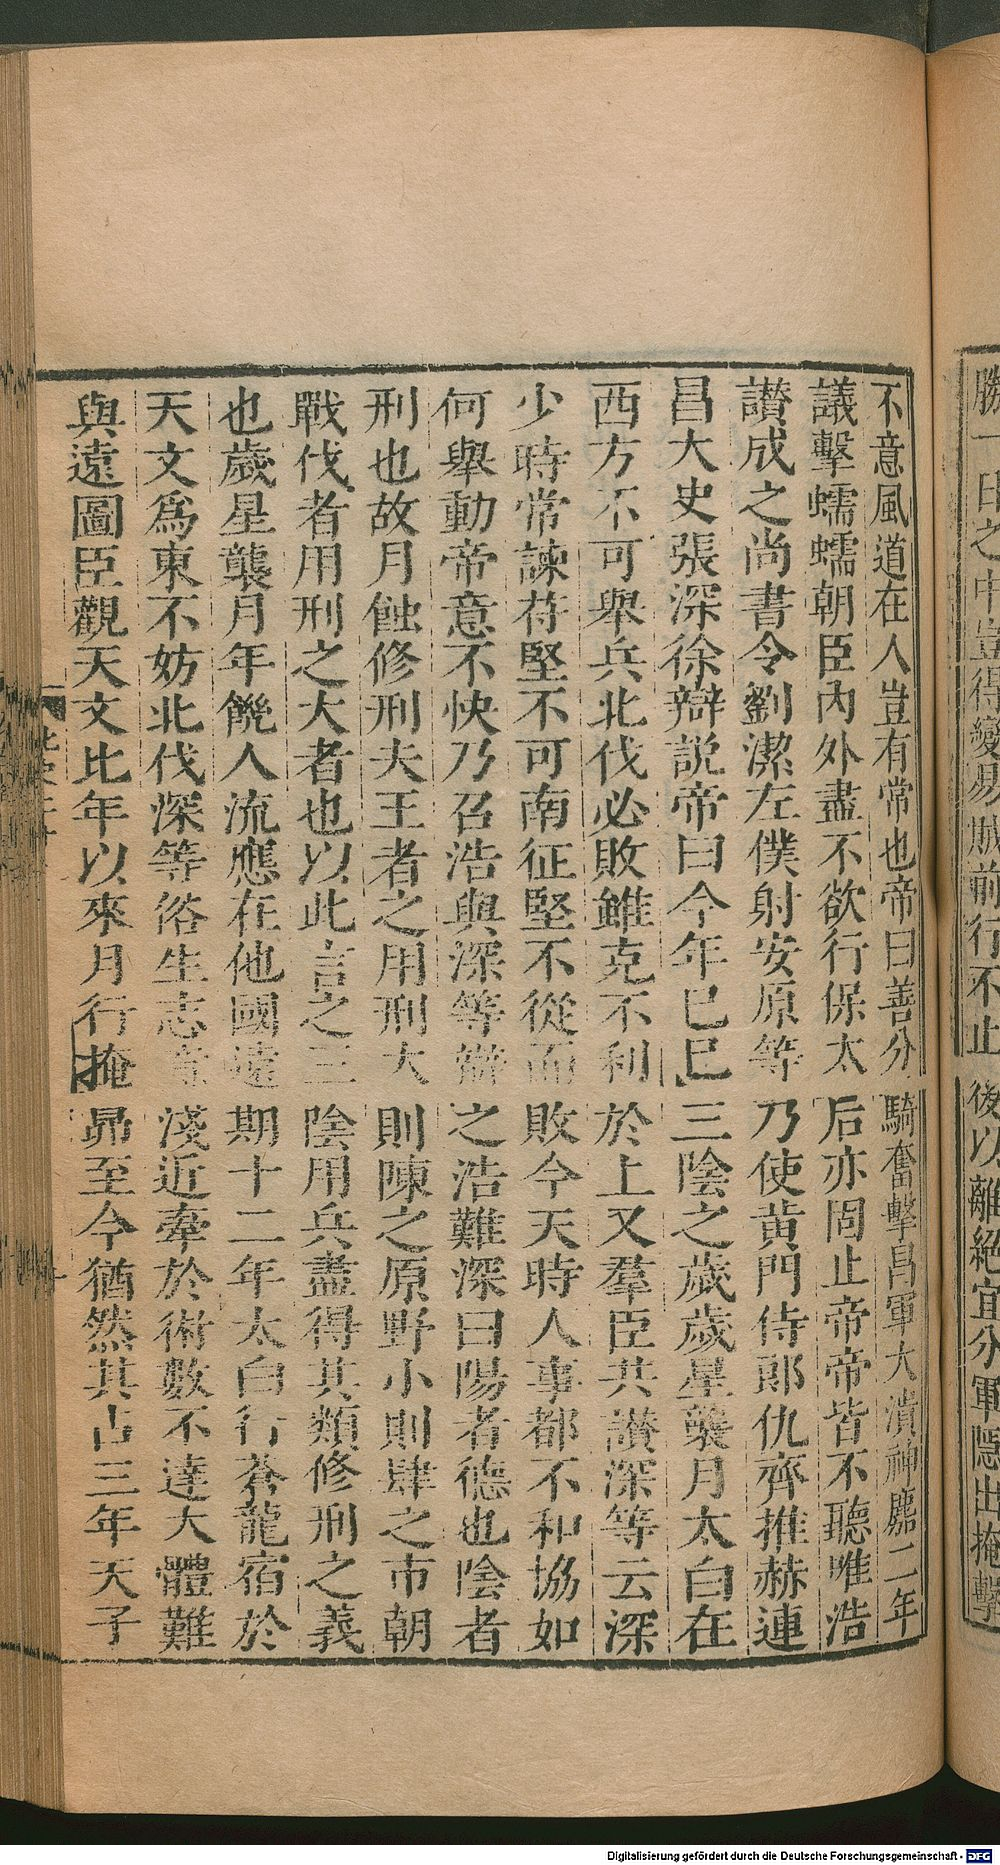 勝一日之中豈得變易賊前行不止後以離絕宜分軍隱出掩擊
不意風道在人豈有常也帝曰善分騎奮擊昌軍大潰神䴥二年
議擊蠕蠕朝臣內外盡不欲行保太后亦固止帝帝皆不聽唯浩
讃成之尚書令劉潔左僕射安原等乃使黄門侍郎仇齊推赫連
昌大史張深徐辯說帝曰今年巳巳三陰之歲歲星襲月太白在
西方不可舉兵北伐必敗雖克不利於上又羣臣共讃深等云深
少時常諫苻堅不可南征堅不從而敗今天時人事都不和協如
何舉動帝意不快乃召浩與深等辯之浩難深曰陽者德也陰者
刑也故月蝕修刑夫王者之用刑大則陳之原野小則肆之市朝
戰伐者用刑之大者也以此言之三陰用兵蓋得其類修刑之義
也歲星襲月年饑人流應在他國遠期十二年太白行蒼龍宿於
天文爲東不妨北伐深等俗生志意淺近牽於術數不達大體難
與遠圖臣觀天文比年以來月行掩昴至今猶然其占三年天子
Digitalisierung gefördert durch die Deutsche Forschungsgemeinschaft - DFG